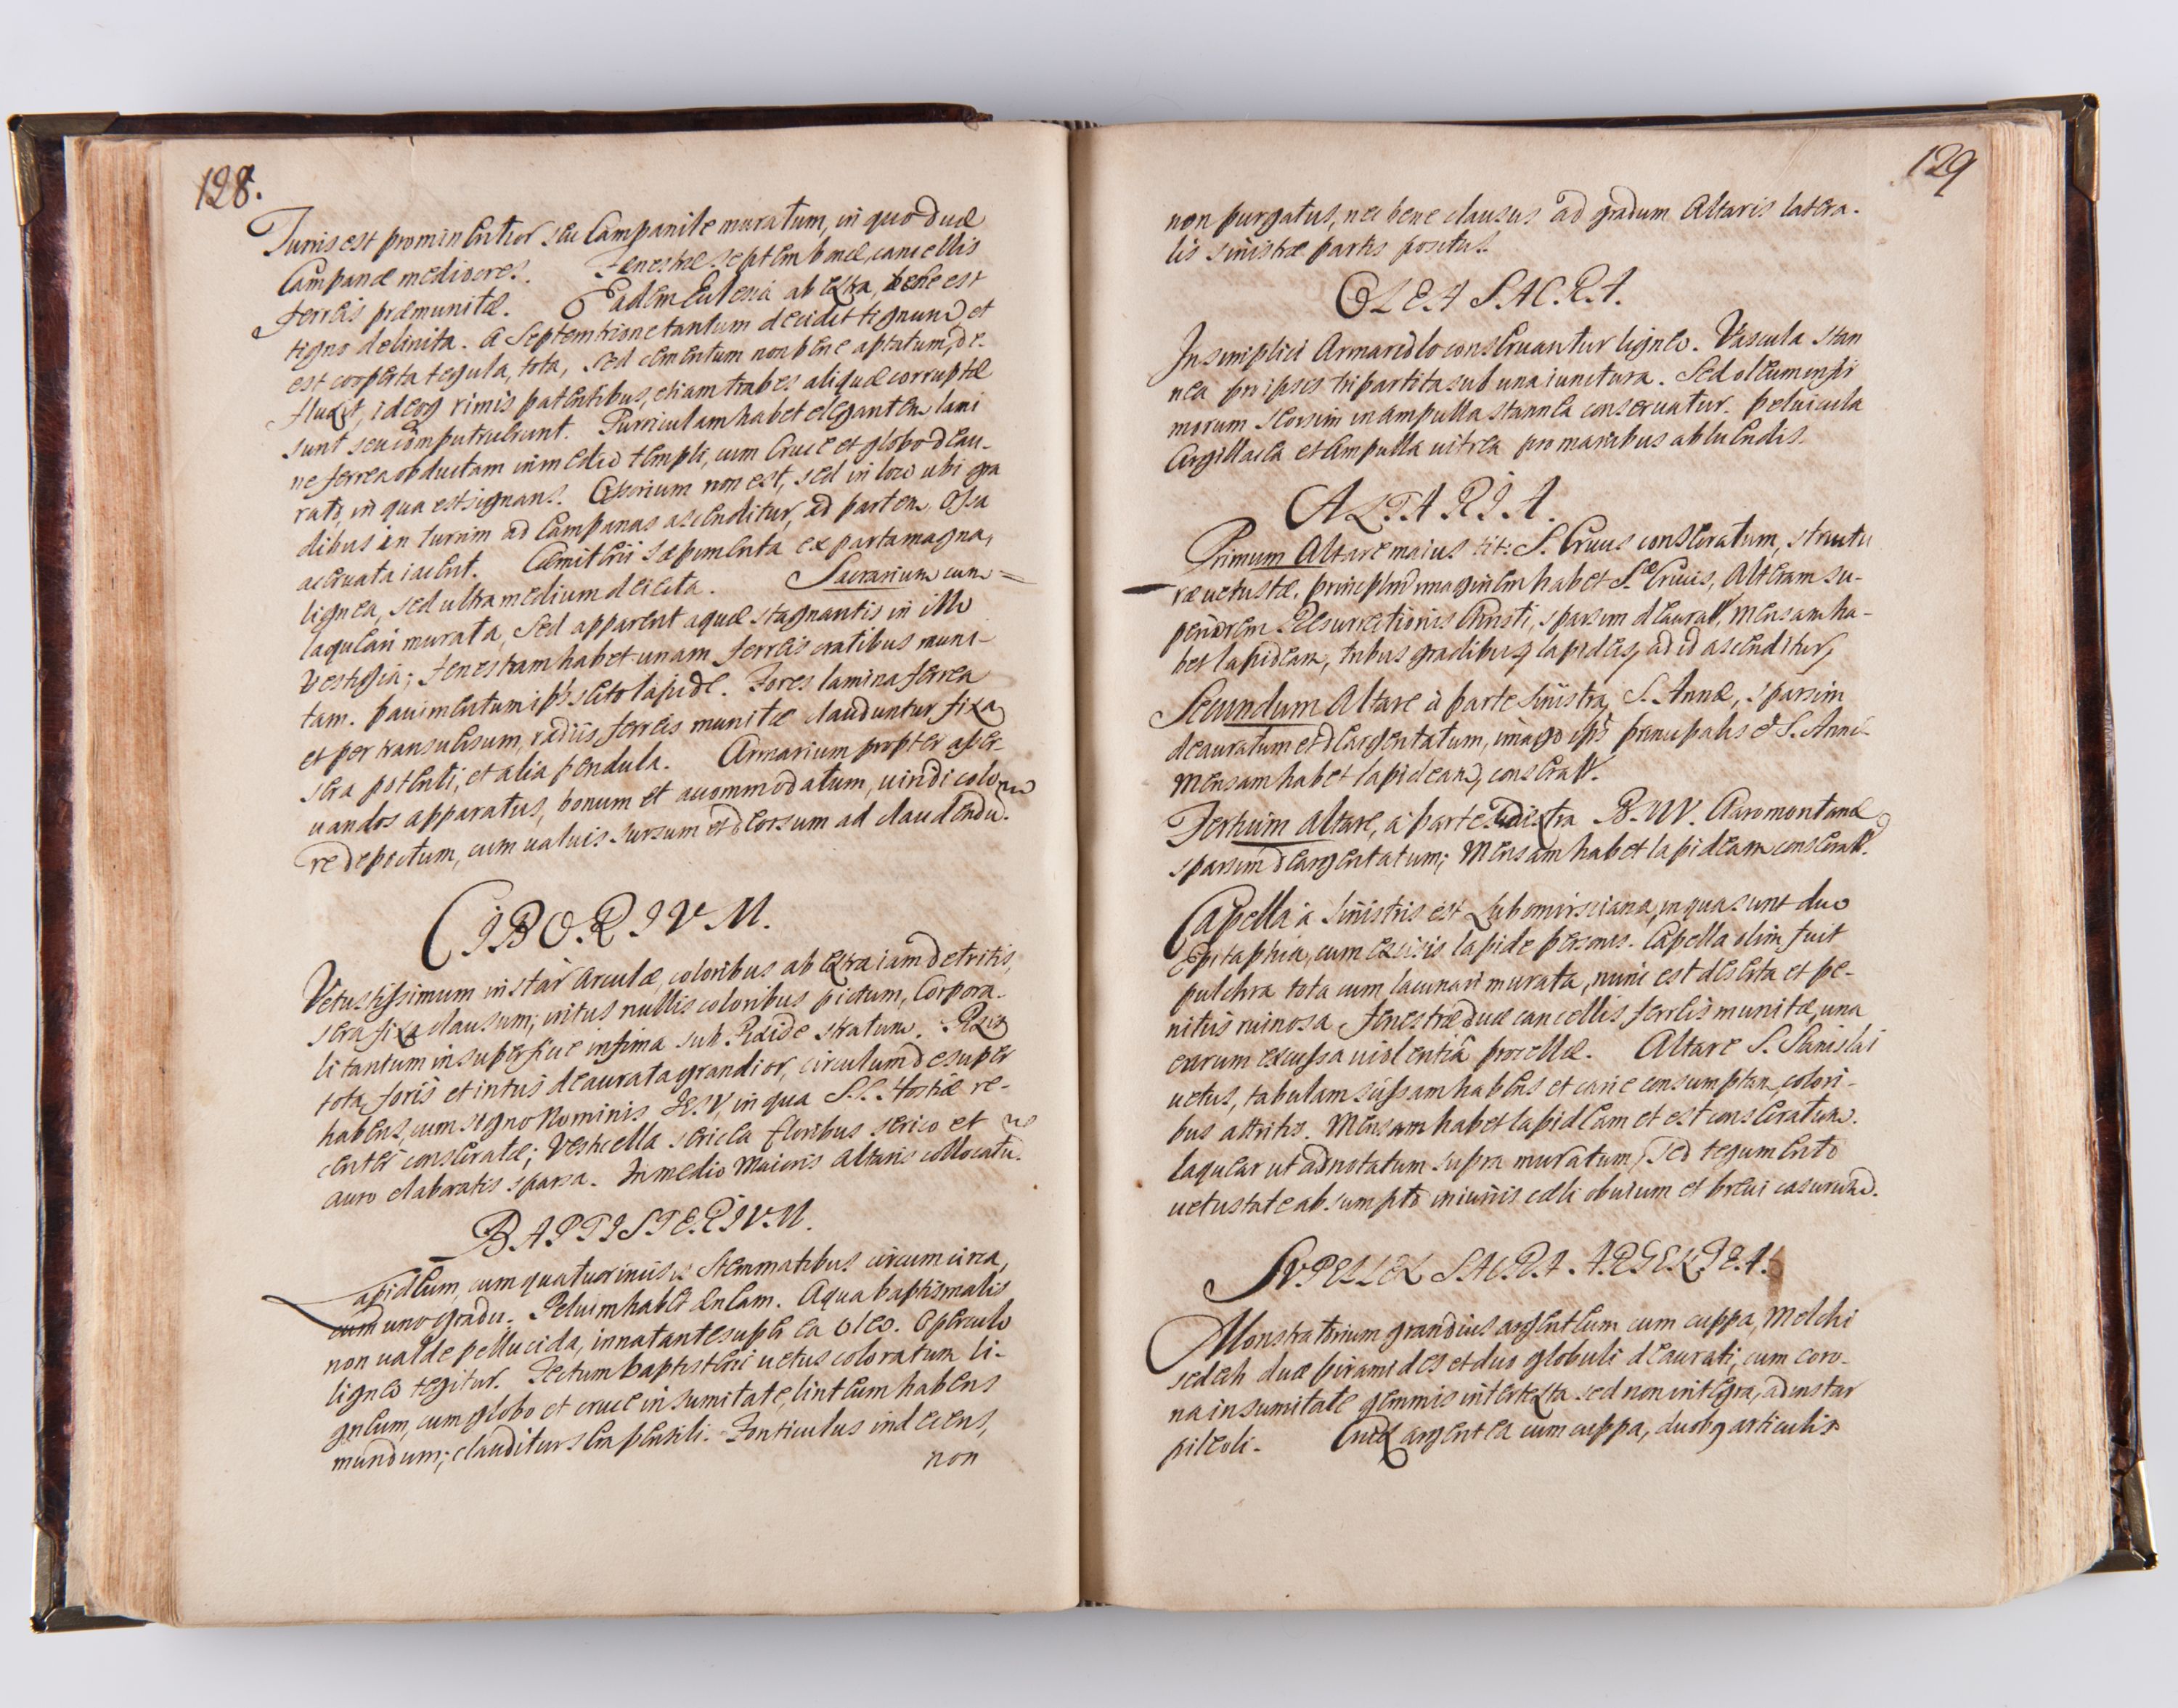 128.
Turris est prominentior seu Campanile muratum, in quo duæ
Campanæ mediocres. Fenestræ septem bonæ, cancellis
ferreis præmunitæ. Eadem Ecclesia ab extra, bene est
tigno delinita. A Septemtrione tantum decidit tignum et
est cooperta tegula, tota, sed cementum non bene aptatum, de-
fluxit, ideoq rimis patentibus, etiam trabes aliquæ corruptæ
sunt seu computruerunt. Turriculam habet elegantem lami
ne ferrea obductam in medio templi, cum Cruce et globo deau-
rato, in qua est signans. Ossorium non est, sed in loco ubi gra
dibus in turrim ad Campanas ascenditur, ad partem, Ossa
acervata iacent. Cæmiterii sæpimenta ex parta magna,
lignea, sed ultra medium deiecta. Sacrarium cum =
laqueari murata, sed apparent aquæ stagnantis in illo
vestigia; fenestram habet unam ferreis cratibus muni-
tam. pavimentum secto lapide. Fores lamina ferrea
et per transuersum, radiis ferreis munitæ clauduntur fixa
sera potenti, et alia pendula. Armarium propter asser-
uandos apparatus, bonum et accommodatum, uiridi colo
re depictum, cum ualuis sursum et deorsum ad claudendu.
CIBORIVM.
Vetustissimum instar Arculæ, coloribus ab extra iam detritis,
sera fixa clausum; intus nullis coloribus pictum, Corpora-
li tantum in superficie infima sub Pixide stratum. Pixis
tota foris et intus deaurata grandior, circulum desuper
habens, cum signo Nominis IESV, in qua S.S. Hostiæ re-
center consecratæ; Vesticella sericea floribus serico et
auro elaboratis sparsa. In medio Maioris Altaris collocatu.
BAPTISTERIVM.
Lapideum, cum quatuor incisis Stemmatibus circumcirca,
cum uno gradu. Peluim habet æneam. Aqua baptismalis
non ualde pellucida, innatante super ea oleo. Operculo
ligneo tegitur. Tectum baptisterii uetus coloratum li-
gneum, cum globo et cruce in sumitate, linteum habens
mundum; clauditur sera pensili. Fonticulus indecens,
non
129
non purgatus, nec bene clausus ad gradum Altaris latera-
lis sinistræ partis positus.
OLEA SACRA.
In simplici Armariolo conseruantur ligneo. Vascula stan
nea pro ipsis tripartita sub una iunctura. Sed oleum infir
morum seorsim in ampulla stannea conseruatur. peluicula
Argillacea et Ampulla uitrea pro manibus abluendis.
ALTARIA.
Primum Altare maius tit: S. Crucis consecratum, structu
ræ uetustæ. principem imaginem habet S. Crucis, Alteram su-
periorem Resurrectionis Christi, sparsim deaurat, Mensam ha-
bet lapideam, tribus gradibusq lapideis, ad id ascenditur,
Secundum Altare à parte Sinistra, S. Annæ, sparsim
deauratum et deargentatum, imago principalis é S. Annæ
Mensam habet lapideam, consecrat.
Tertium Altare, à parte dextra B.M.V. Claromontanæ
sparsim deargentatum; Mensam habet lapideam consecrat.
Capella à Sinistris est Lubomirsciana, in qua sunt duo
Epitaphia, cum excisis lapide personis. Capella olim fuit
pulchra tota cum lacunari murata, nunc est deserta et pe-
nitus ruinosa, fenestræ duæ cancellis ferreis munitæ, una
earum excussa uiolentiâ procellæ. Altare S. Stanislai
uetus, tabulam scissam habens et carie consumptam, colori-
bus attritis. Mensam habet lapideam et est consecratum.
laquear ut adnotatum supra muratum, sed tegumento
uetustate absumpto iniuriis cœli obuium et breui casurum.
SVPELLEX SACRA ARGENTEA.
Monstratorium grandius argenteum cum cuppa, Melchi
sedech duæ piramides et duo globuli deaurati, cum coro-
na in sumitate gemmis intertexta sed non integra, ad instar
pileoli. Crux argentea cum cuppa, duobq articulis